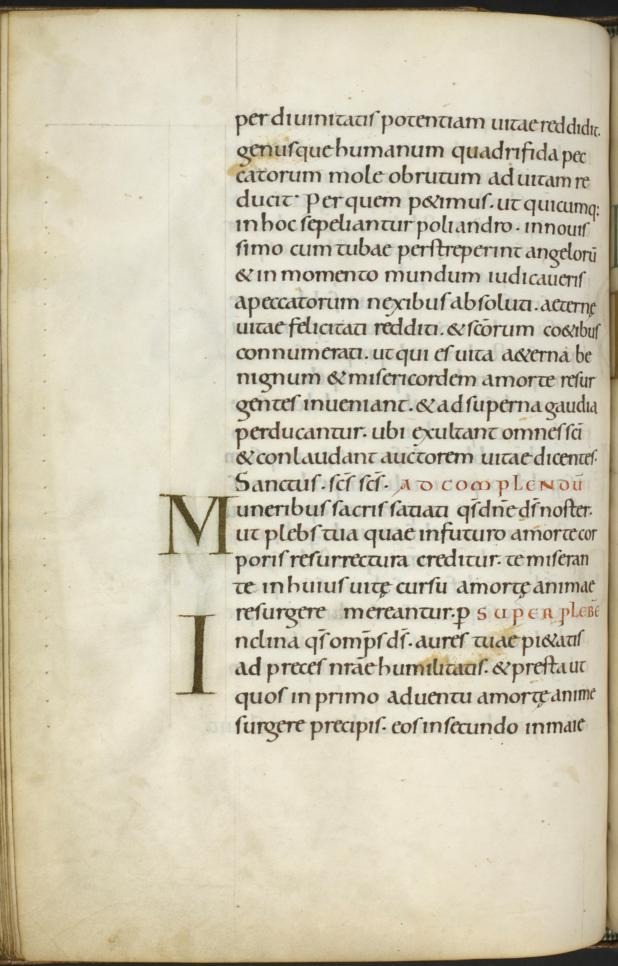 per diuinitatis potentiam uitae reddidit.
genusque humanum quadrifida pec
catorum mole obrutum ad uitam re
ducit· Per quem p&imus. ut quicumq:
in hoc sepeliantur poliandro. in nouis
simo cum tubae perstreperint angelorū
& in momento mundum iudicaueris
a peccatorum nexibus absoluti. aeternę
uitae felicitati redditi. & scōrum co&ibus
connumerati. ut qui es uita a&erna be
nignum & misericordem a morte resur
gentes inueniant. & ad superna gaudia
perducantur. ubi exultant omnes sci
& conlaudant auctorem uitae dicentes.
Sanctus. scs scs. AD COMPLENDŪ
Muneribus sacris satiati qs dne ds noster.
ut plebs tua quae in futuro a morte cor
poris resurrectura creditur. te miseran
te in huius uitę cursu a mortę animae
resurgere mereantur. p SUPER PLEBĒ
Inclina qs omps ds. aures tuae pi&atis
ad preces nrae humilitatis. & presta ut
quos in primo aduentu a mortę anime
surgere precipis. eos in secundo in maie